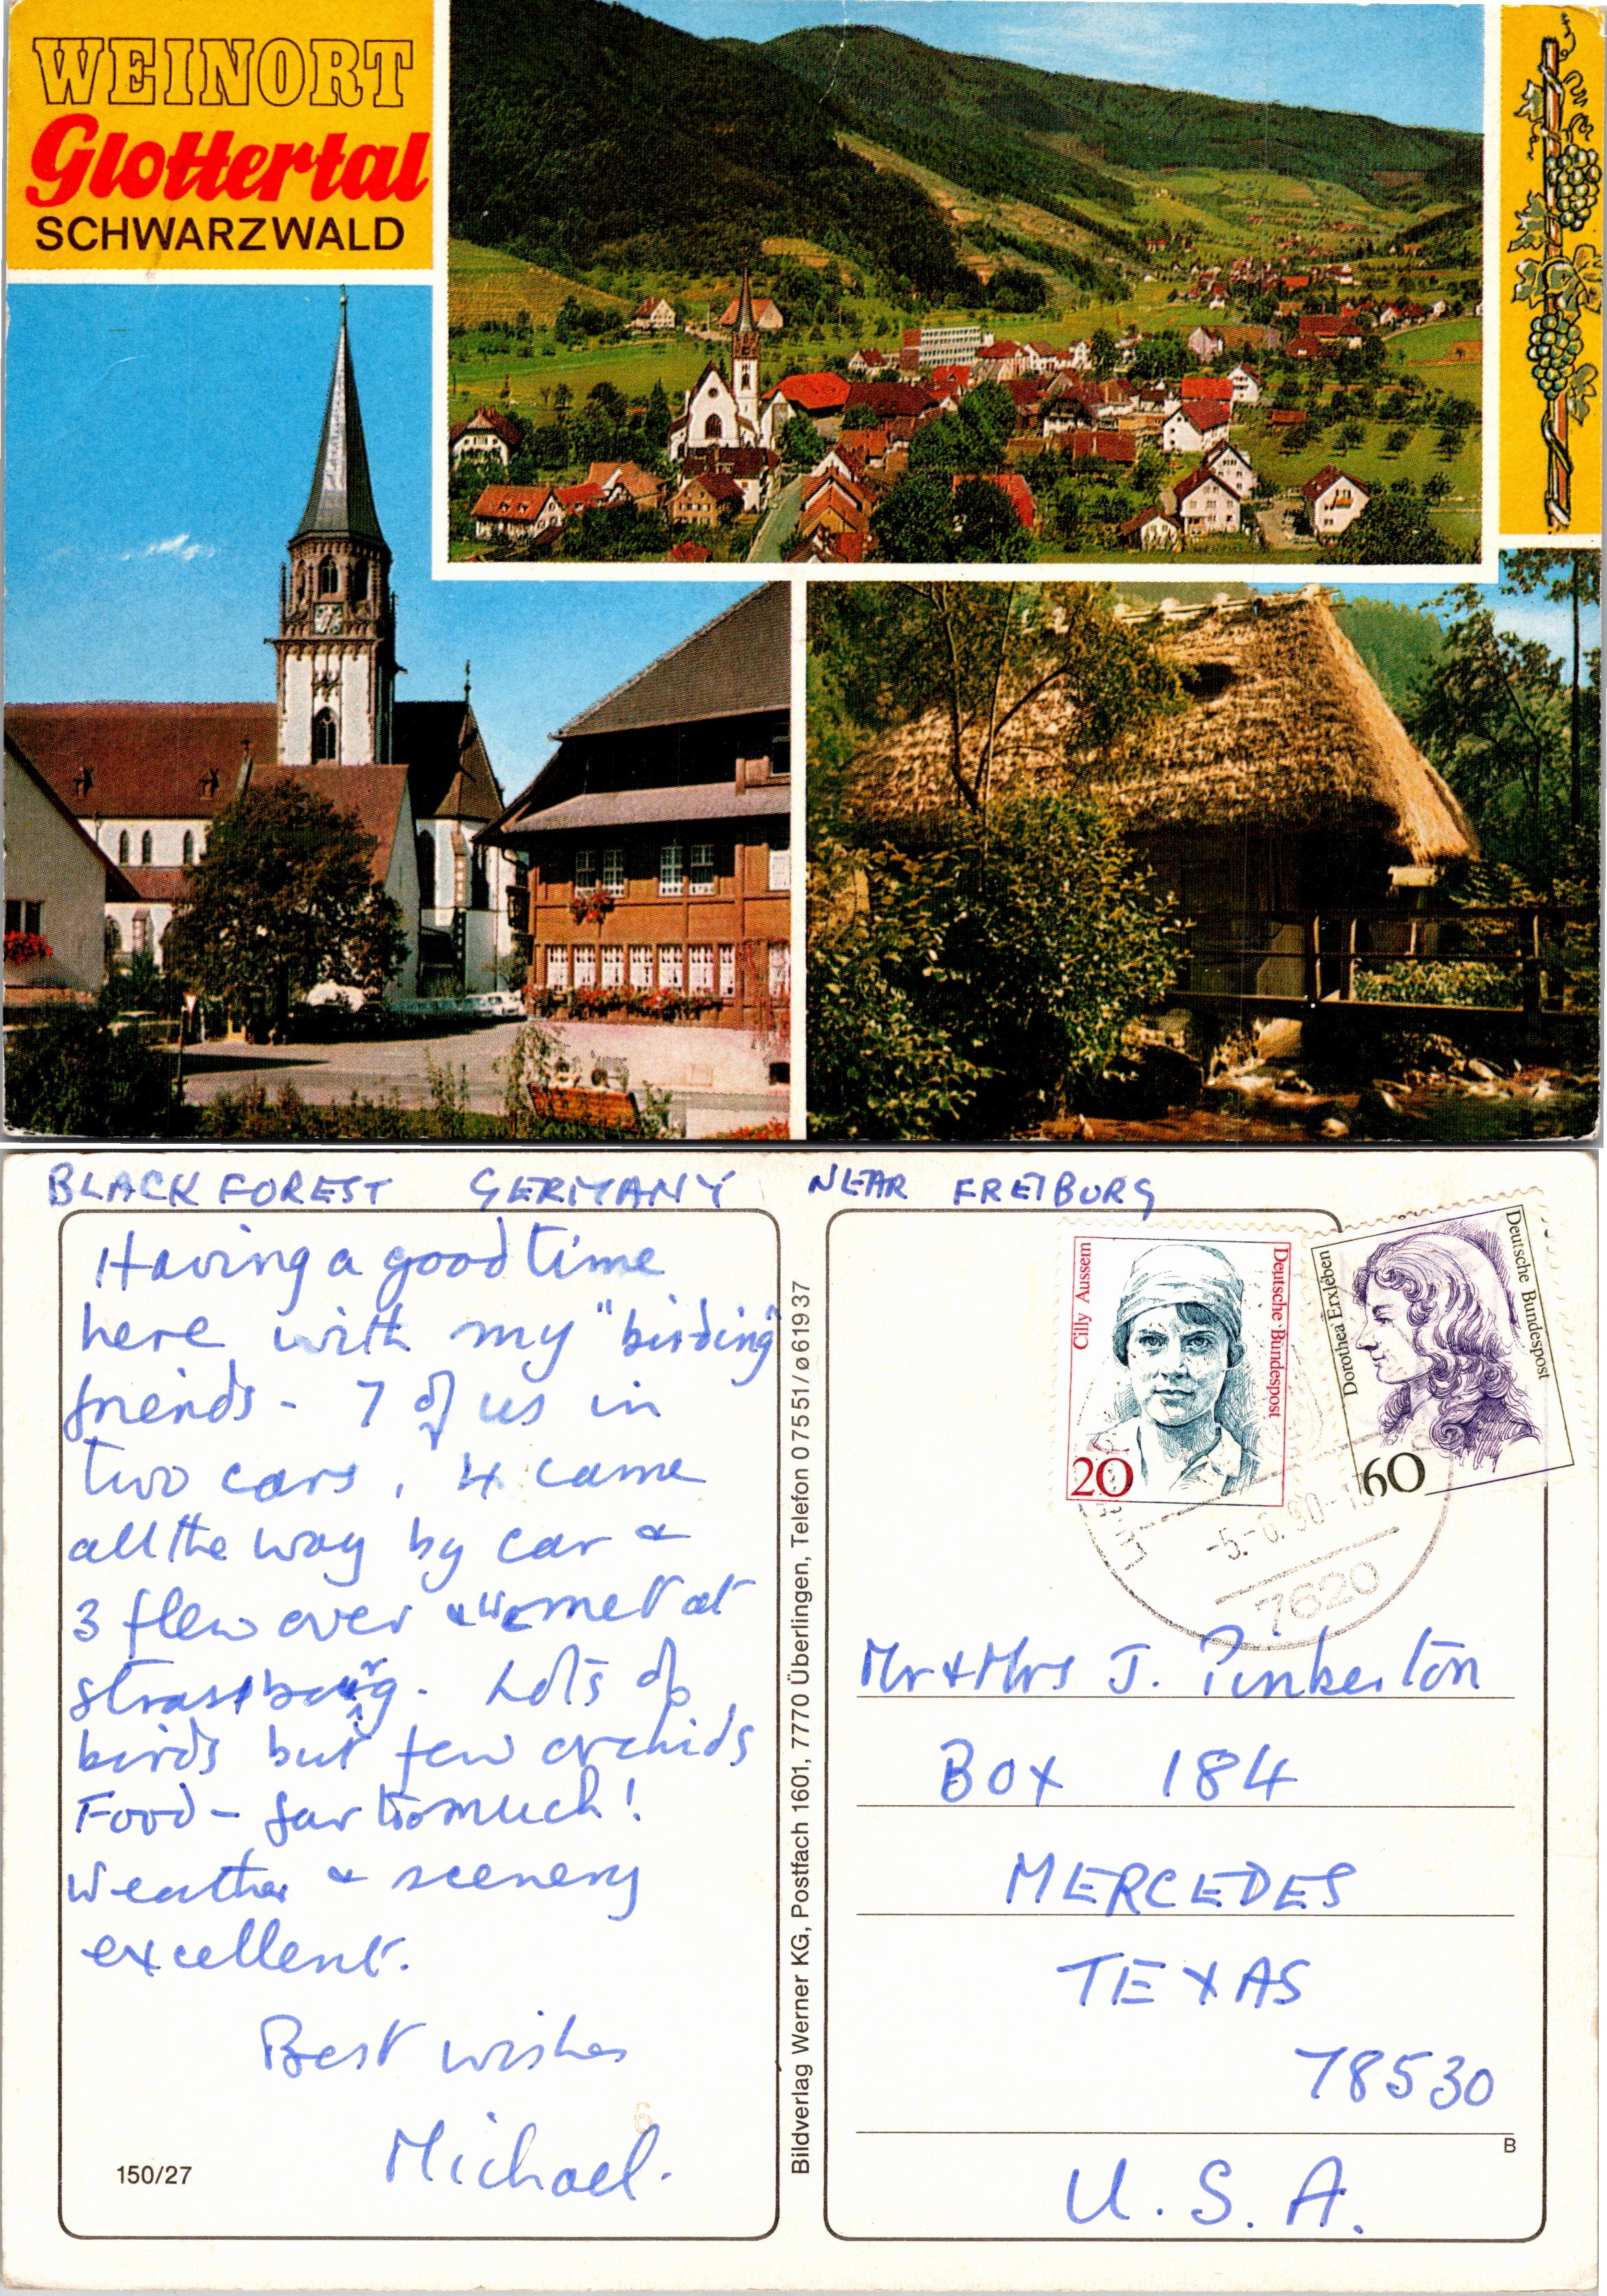 WEINORT
Glottertal
SCHWARZWALD
BLACK FOREST GERMANY NEAR FREIBURG
Having a good time
here with my "birding"
friends - 7 of us in
two cars, 4 came
all the way by car &
3 flew over & we met at
strassbourg. Lots of
birds but few orchids
Food - far too much!
Weather & scenery
excellent.
Best wishes
Michael.
150/27
6
Bildverlag Werner KG, Postfach 1601, 7770 Überlingen, Telefon 07551/ø61937
Cilly Aussem
Deutsche Bundespost
20
Dorothea Erxleben
Deutsche Bundespost
60
-5.-6.90-
7620
Mr & Mrs J. Pinkerton
BOX 184
MERCEDES
TEXAS
78530
B
U.S.A.